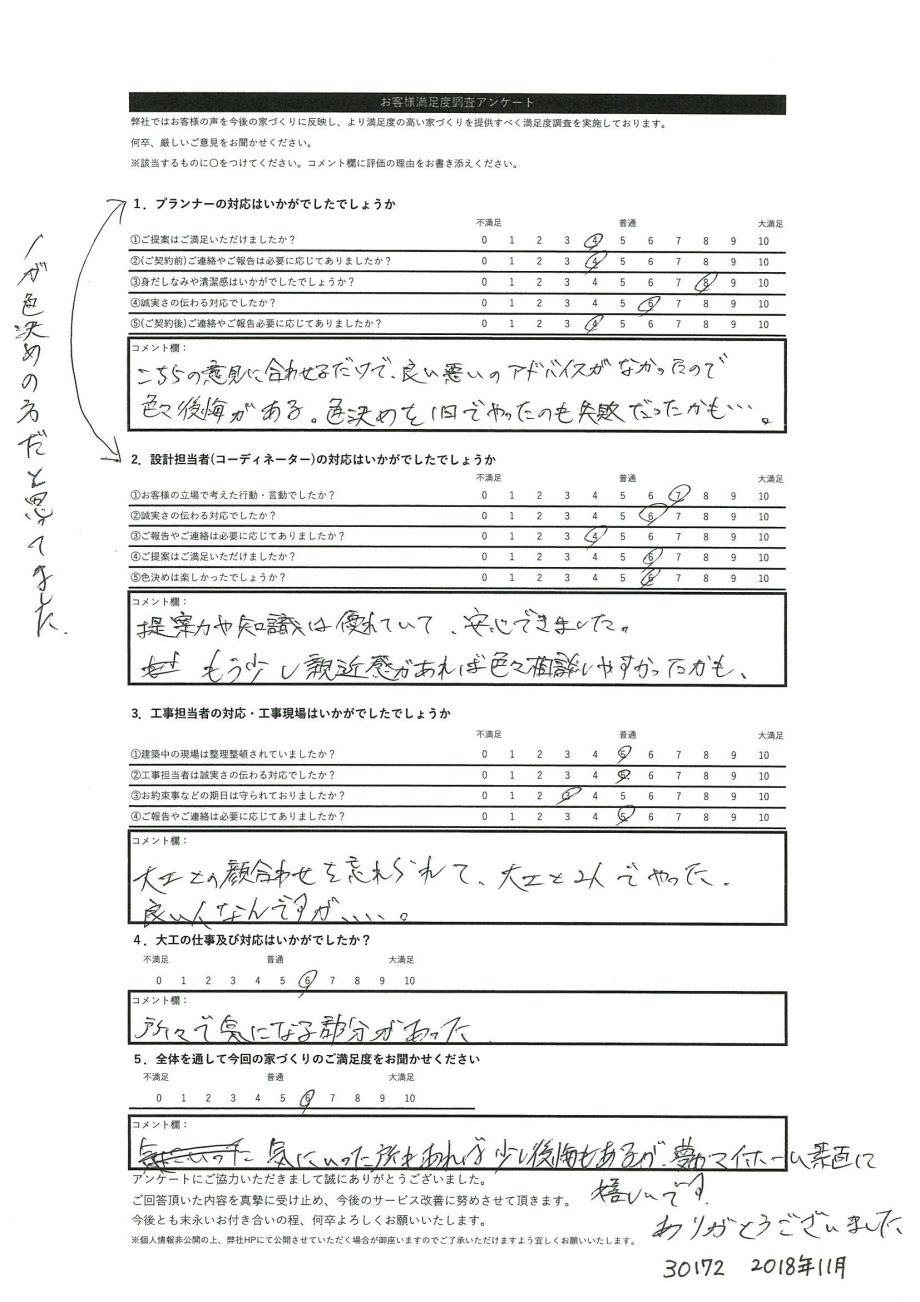 お客様満足度調査アンケート
弊社ではお客様の声を今後の家づくりに反映し、より満足度の高い家づくりを提供すべく満足度調査を実施しております。
何卒、厳しいご意見をお聞かせください。
※該当するものに〇をつけてください。コメント欄に評価の理由をお書き添えください。
1．プランナーの対応はいかがでしたでしょうか
不満足 普通 大満足
①ご提案はご満足いただけましたか？ 0 1 2 3 4 5 6 7 8 9 10
②(ご契約前)ご連絡やご報告は必要に応じてありましたか？ 0 1 2 3 4 5 6 7 8 9 10
③身だしなみや清潔感はいかがでしたでしょうか？ 0 1 2 3 4 5 6 7 8 9 10
④誠実さの伝わる対応でしたか？ 0 1 2 3 4 5 6 7 8 9 10
⑤(ご契約後)ご連絡やご報告必要に応じてありましたか？ 0 1 2 3 4 5 6 7 8 9 10
コメント欄：
こちらの意見に合わせるだけで、良い悪いのアドバイスがなかったので
色々後悔がある。色決めを1日でやったのも失敗だったかも…。
1が色決めの方だと思ってました.
2．設計担当者(コーディネーター)の対応はいかがでしたでしょうか
不満足 普通 大満足
①お客様の立場で考えた行動・言動でしたか？ 0 1 2 3 4 5 6 7 8 9 10
②誠実さの伝わる対応でしたか？ 0 1 2 3 4 5 6 7 8 9 10
③ご報告やご連絡は必要に応じてありましたか？ 0 1 2 3 4 5 6 7 8 9 10
④ご提案はご満足いただけましたか？ 0 1 2 3 4 5 6 7 8 9 10
⑤色決めは楽しかったでしょうか？ 0 1 2 3 4 5 6 7 8 9 10
コメント欄：
提案力や知識は優れていて、安心できました。
もう少し親近感があれば色々相談しやすかったかも、
3．工事担当者の対応・工事現場はいかがでしたでしょうか
不満足 普通 大満足
①建築中の現場は整理整頓されていましたか？ 0 1 2 3 4 5 6 7 8 9 10
②工事担当者は誠実さの伝わる対応でしたか？ 0 1 2 3 4 5 6 7 8 9 10
③お約束事などの期日は守られておりましたか？ 0 1 2 3 4 5 6 7 8 9 10
④ご報告やご連絡は必要に応じてありましたか？ 0 1 2 3 4 5 6 7 8 9 10
コメント欄：
大工との顔合わせを忘れられて、大工と2人でやった.
良い人なんですが、、、、。
4．大工の仕事及び対応はいかがでしたか？
不満足 普通 大満足
0 1 2 3 4 5 6 7 8 9 10
コメント欄：
所々で気になる部分があった
5．全体を通して今回の家づくりのご満足度をお聞かせください
不満足 普通 大満足
0 1 2 3 4 5 6 7 8 9 10
コメント欄：
気にいった所もあれば少し後悔もあるが、夢のマイホーム 素直に
嬉しいです.
アンケートにご協力いただきまして誠にありがとうございました。
ご回答頂いた内容を真摯に受け止め、今後のサービス改善に努めさせて頂きます。
ありがとうございました
今後とも末永いお付き合いの程、何卒よろしくお願いいたします。
※個人情報非公開の上、弊社HPにて公開させていただく場合が御座いますのでご了承いただけますよう宜しくお願いいたします。
30172 2018年11月